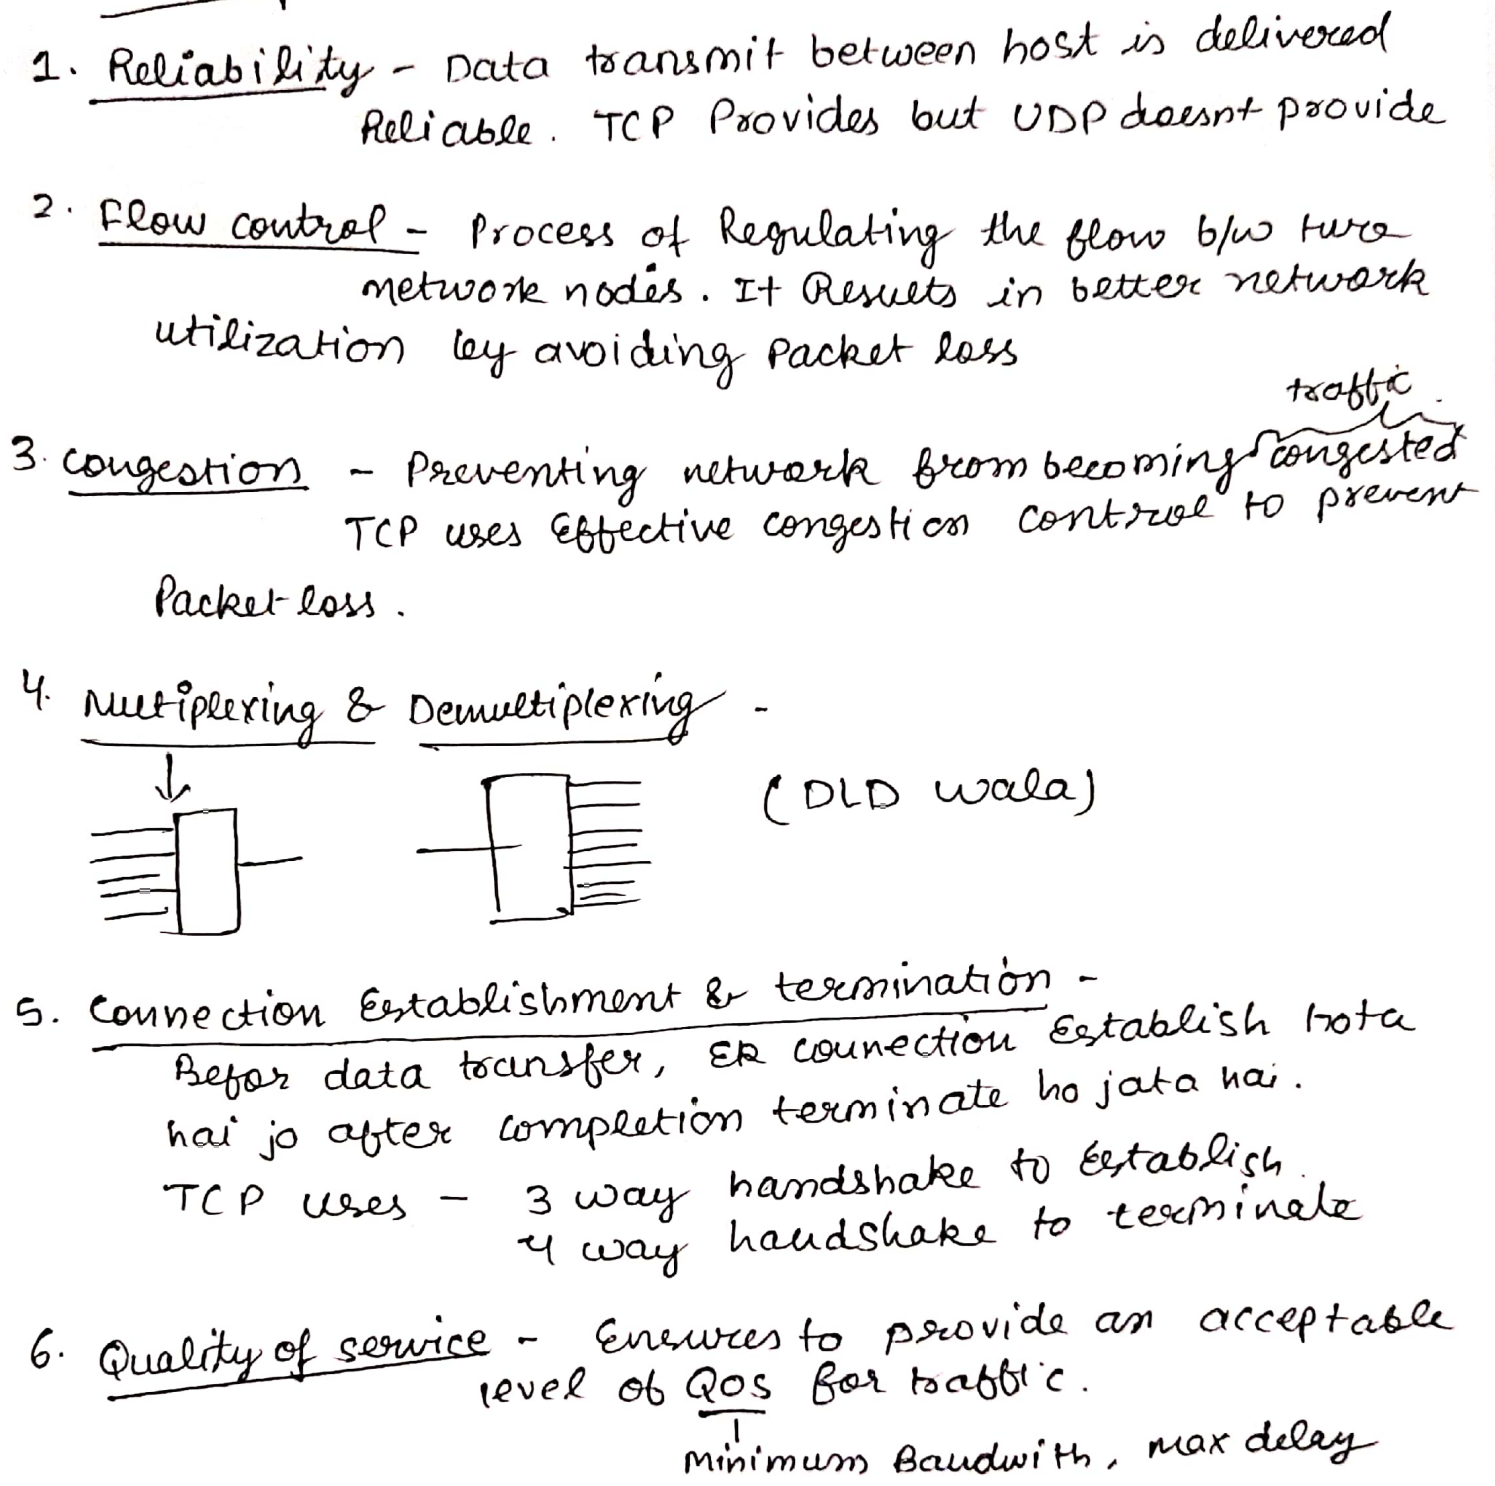 1. Reliability - Data transmit between host is delivered
Reliable. TCP Provides but UDP doesnt provide
2. Flow control - Process of Regulating the flow b/w two
network nodes. It Results in better network
utilization by avoiding Packet loss
traffic
3. congestion - Preventing network from becoming congested
TCP uses Effective congestion control to prevent
Packet loss.
4. Multiplexing & Demultiplexing -
(DLD wala)
5. Connection Establishment & termination -
Befor data transfer, ek connection Establish hota
hai jo after completion terminate ho jata hai.
TCP uses - 3 way handshake to Establish
4 way handshake to terminate
6. Quality of service - Ensures to provide an acceptable
level of QoS for traffic.
Minimum Bandwith, max delay